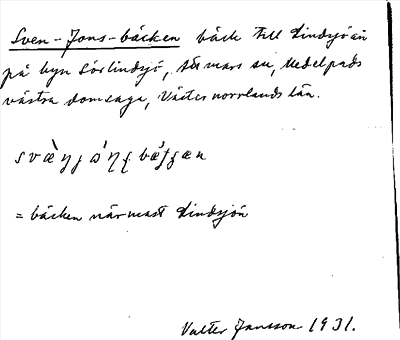 Sven-Jons-bäcken bäck till Lindsjöån
på byn Sörlindsjö, Stöde sn, Medelpads
västra domsaga, Västernorrlands län.
= bäcken närmast Lindsjön
Valter Jansson 1931.